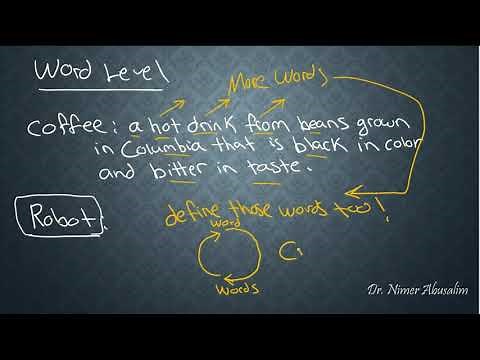 Word Level
More Words
coffee: a hot drink from beans grown
in Columbia that is black in color
and bitter in taste.
Robot:
define those words too!
word
words
Ci
Dr. Nimer Abusalim